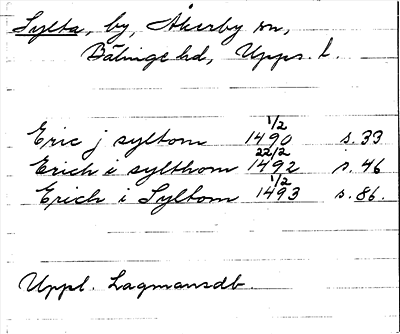 Sylta, by, Åkerby sn,
Bälinge hd, Upps. l.
Eric j syltom 1/2 1490 s. 33
Erich i sylthom 22/2 1492 s. 46
Erich i Syltom 1/2 1493 s. 86.
Uppl. Lagmansdb.